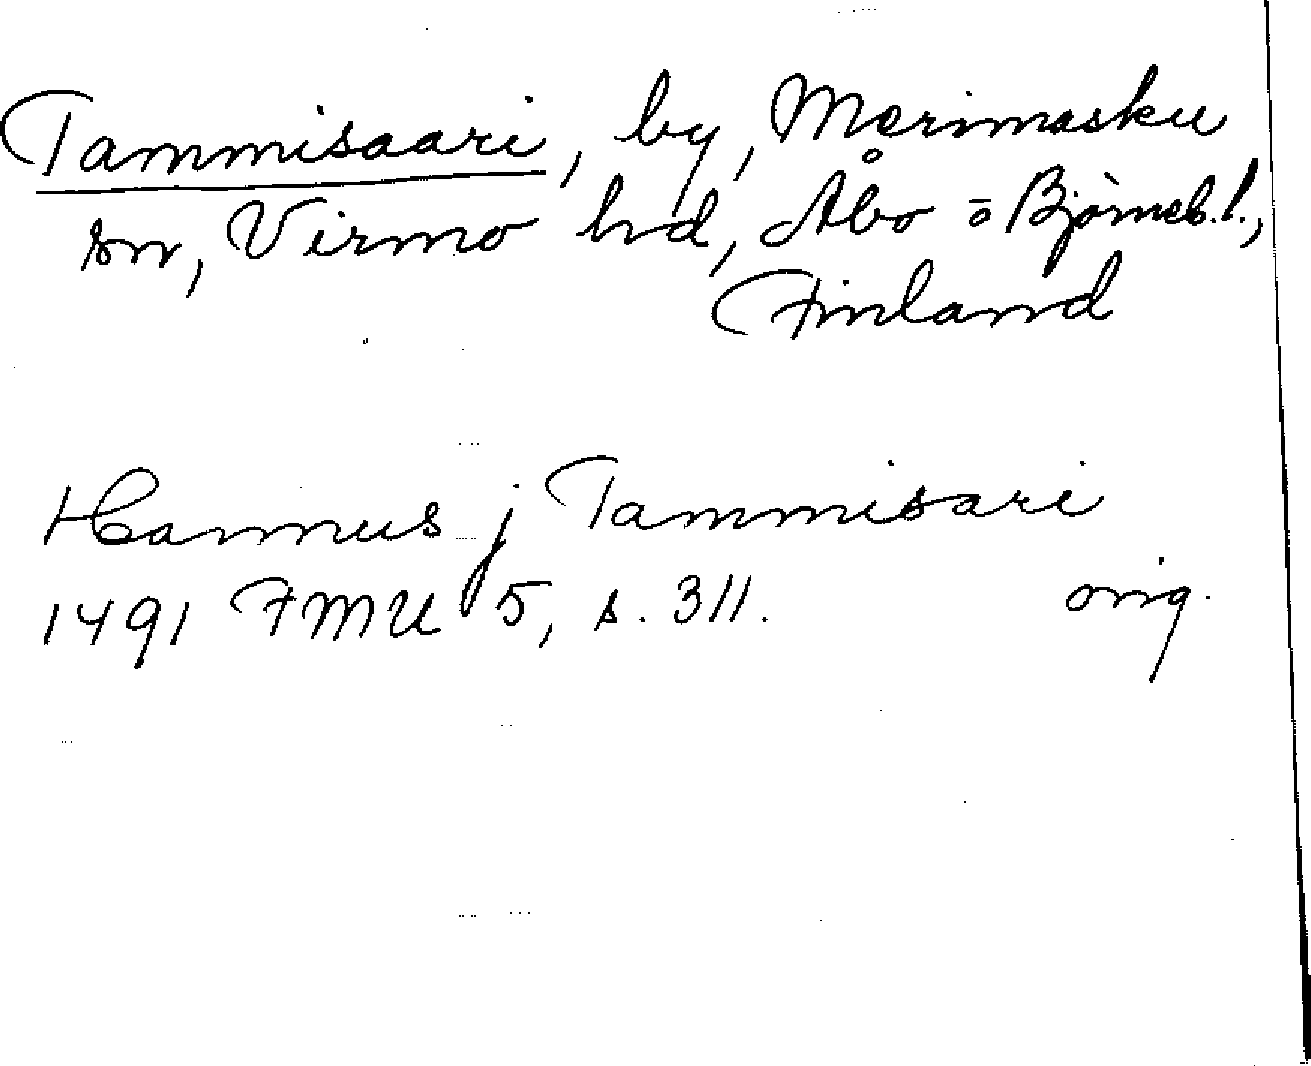 Tammisaari, by, Merimasku
sn, Virmo hd, Åbo o Björneb. l.,
Finland
Hannus j Tammisari
1491 FMU 5, s. 311. orig.